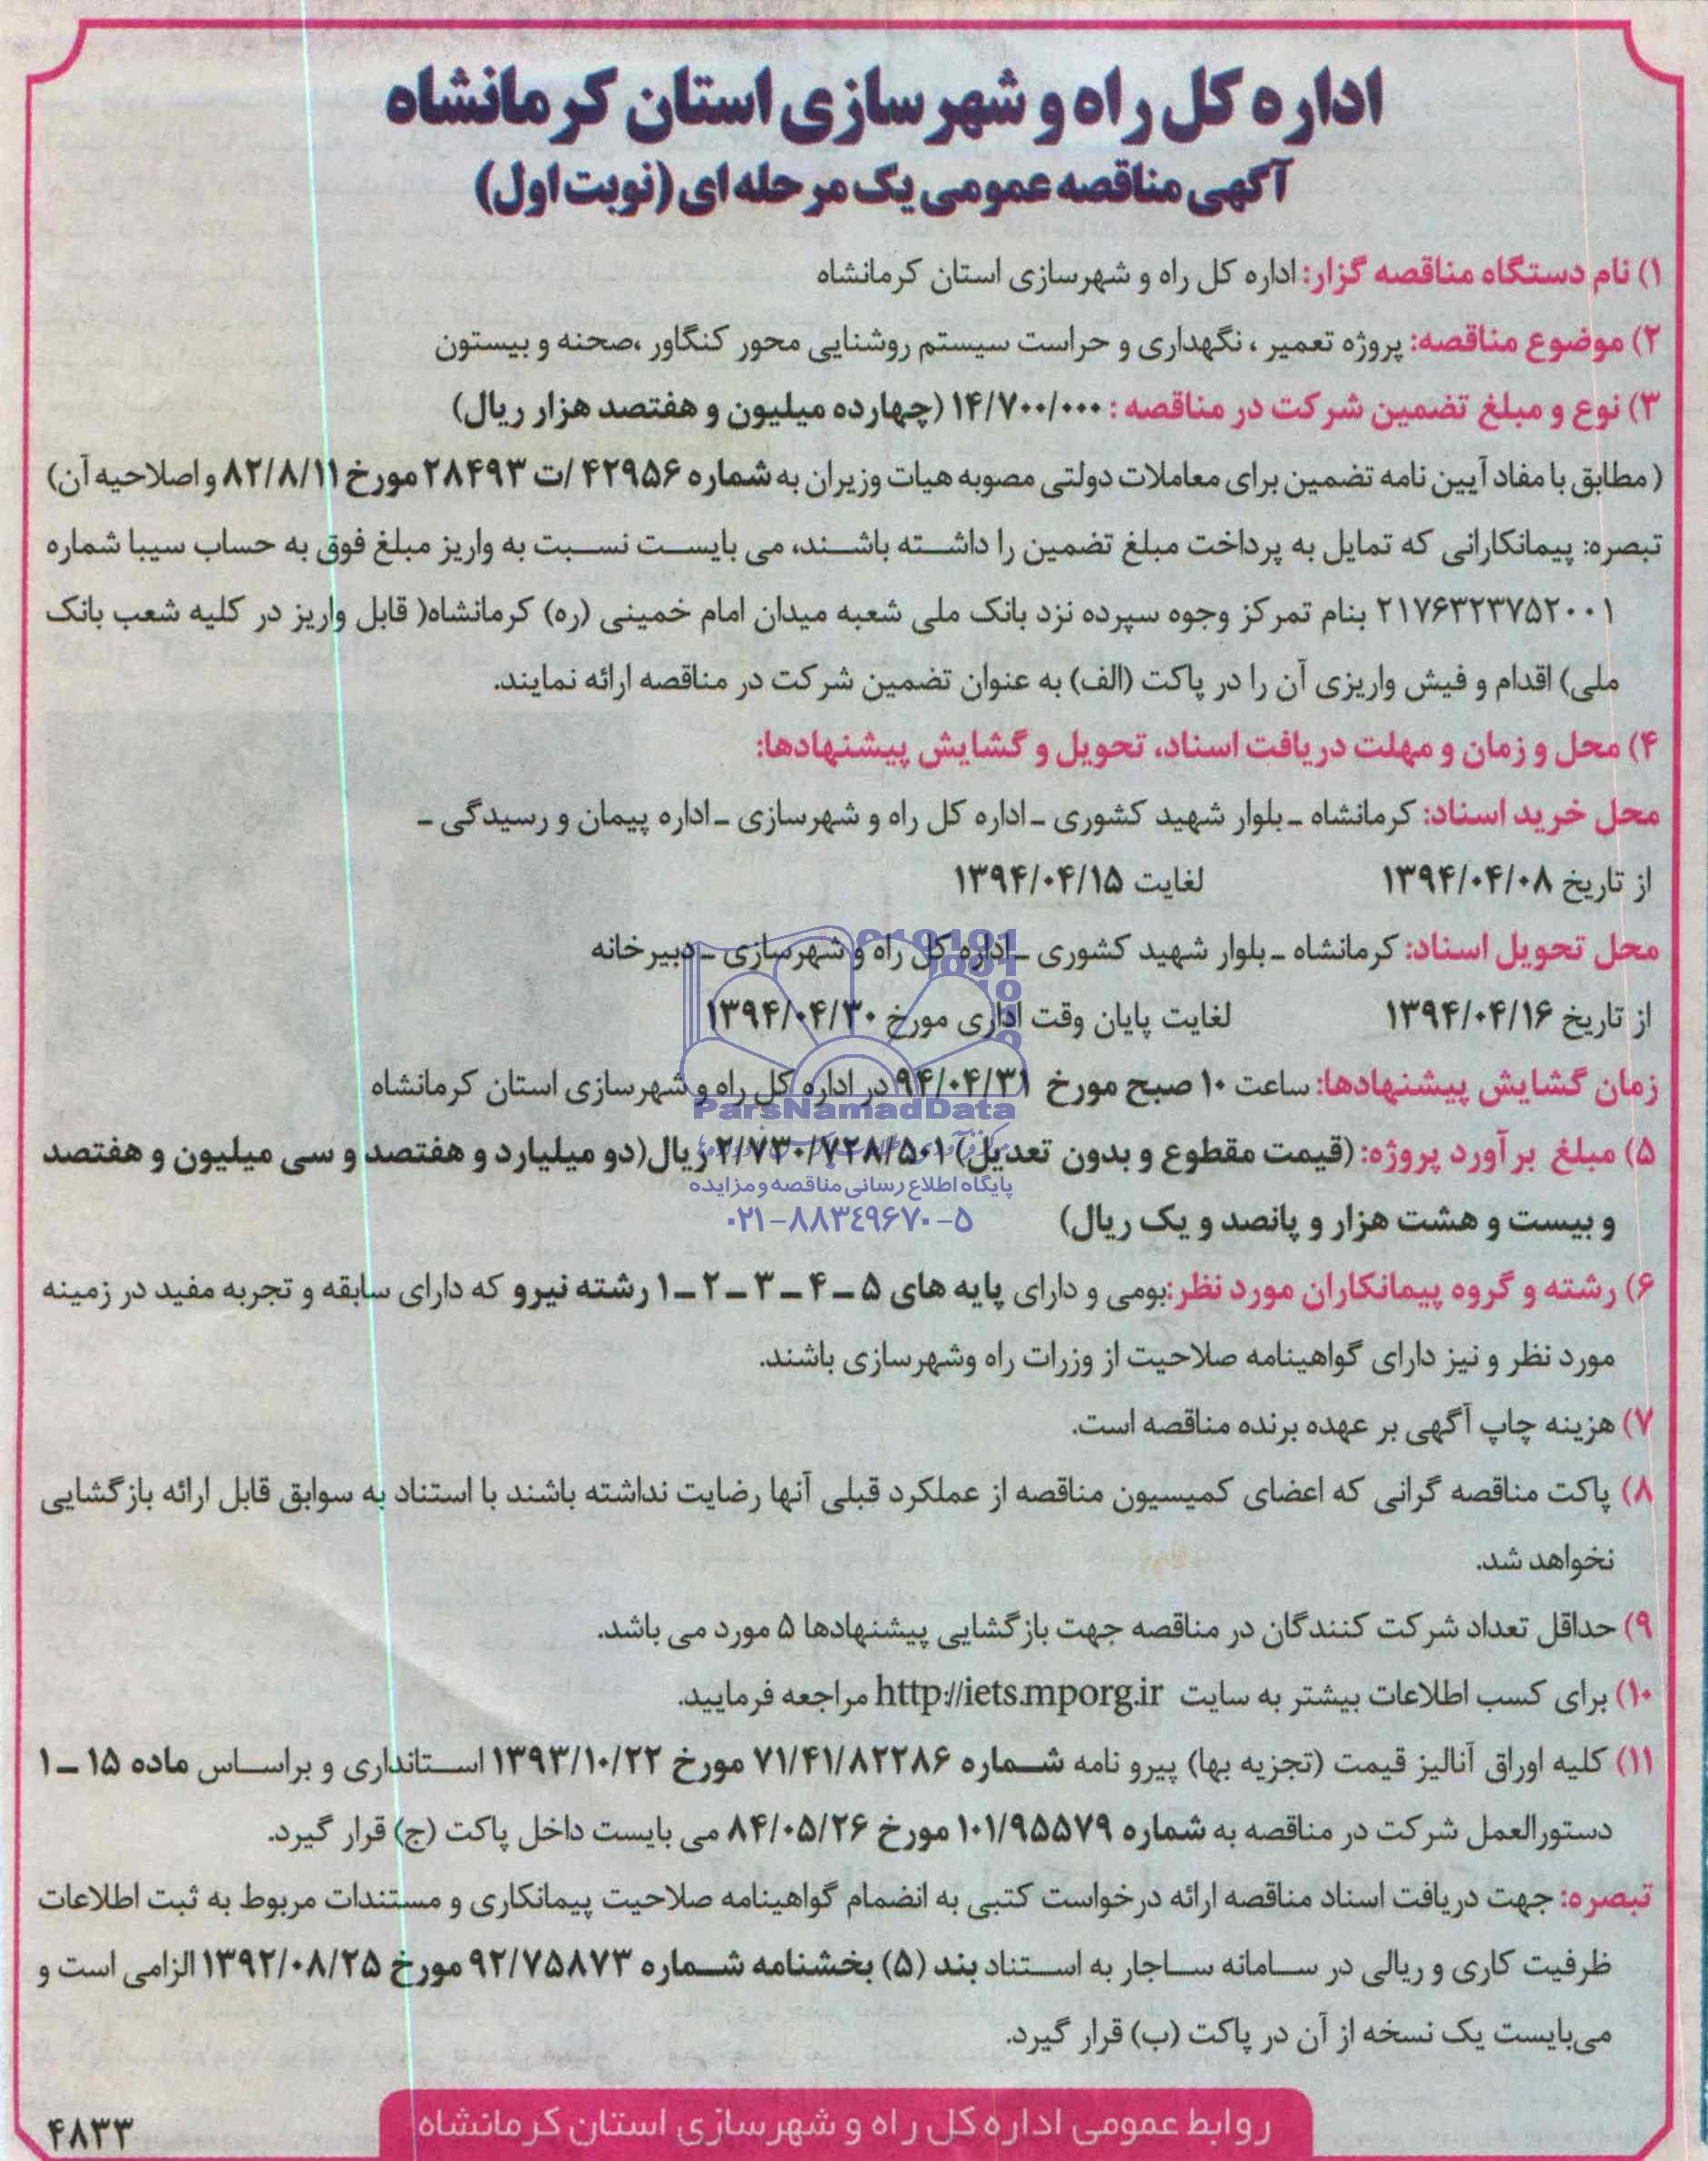 اداره کل راه و شهرسازی استان کرمانشاه
آگهی مناقصه عمومی یک مرحله ای (نوبت اول)
۱) نام دستگاه مناقصه گزار: اداره کل راه و شهرسازی استان کرمانشاه
۲) موضوع مناقصه: پروژه تعمیر ، نگهداری و حراست سیستم روشنایی محور کنگاور ،صحنه و بیستون
۳) نوع و مبلغ تضمین شرکت در مناقصه : ۱۴/۷۰۰/۰۰۰ (چهارده میلیون و هفتصد هزار ریال)
( مطابق با مفاد آیین نامه تضمین برای معاملات دولتی مصوبه هیات وزیران به شماره ۴۲۹۵۶ /ت ۲۸۴۹۳ مورخ ۸۲/۸/۱۱ و اصلاحیه آن)
تبصره: پیمانکارانی که تمایل به پرداخت مبلغ تضمین را داشته باشند، می بایست نسبت به واریز مبلغ فوق به حساب سیبا شماره
۲۱۷۶۳۲۳۷۵۲۰۰۱ بنام تمرکز وجوه سپرده نزد بانک ملی شعبه میدان امام خمینی (ره) کرمانشاه( قابل واریز در کلیه شعب بانک
ملی) اقدام و فیش واریزی آن را در پاکت (الف) به عنوان تضمین شرکت در مناقصه ارائه نمایند.
۴) محل و زمان و مهلت دریافت اسناد، تحویل و گشایش پیشنهادها:
محل خرید اسناد: کرمانشاه ـ بلوار شهید کشوری ـ اداره کل راه و شهرسازی ـ اداره پیمان و رسیدگی ـ
از تاریخ ۱۳۹۴/۰۴/۰۸ لغایت ۱۳۹۴/۰۴/۱۵
محل تحویل اسناد: کرمانشاه ـ بلوار شهید کشوری ـ اداره کل راه و شهرسازی ـ دبیرخانه
از تاریخ ۱۳۹۴/۰۴/۱۶ لغایت پایان وقت اداری مورخ ۱۳۹۴/۰۴/۳۰
زمان گشایش پیشنهادها: ساعت ۱۰ صبح مورخ ۹۴/۰۴/۳۱ در اداره کل راه و شهرسازی استان کرمانشاه
ParsNamadData
۵) مبلغ برآورد پروژه: (قیمت مقطوع و بدون تعدیل) ۲/۷۳۰/۷۲۸/۵۰۱ ریال(دو میلیارد و هفتصد و سی میلیون و هفتصد
پایگاه اطلاع رسانی مناقصه و مزایده
و بیست و هشت هزار و پانصد و یک ریال)
۰۲۱-۸۸۳۴۹۶۷۰-۵
۶) رشته و گروه پیمانکاران مورد نظر:بومی و دارای پایه های ۵ ـ ۴ ـ ۳ ـ ۲ ـ ۱ رشته نیرو که دارای سابقه و تجربه مفید در زمینه
مورد نظر و نیز دارای گواهینامه صلاحیت از وزرات راه وشهرسازی باشند.
۷) هزینه چاپ آگهی بر عهده برنده مناقصه است.
۸) پاکت مناقصه گرانی که اعضای کمیسیون مناقصه از عملکرد قبلی آنها رضایت نداشته باشند با استناد به سوابق قابل ارائه بازگشایی
نخواهد شد.
۹) حداقل تعداد شرکت کنندگان در مناقصه جهت بازگشایی پیشنهادها ۵ مورد می باشد.
۱۰) برای کسب اطلاعات بیشتر به سایت http://iets.mporg.ir مراجعه فرمایید.
۱۱) کلیه اوراق آنالیز قیمت (تجزیه بها) پیرو نامه شماره ۷۱/۴۱/۸۲۲۸۶ مورخ ۱۳۹۳/۱۰/۲۲ استانداری و براساس ماده ۱۵ ـ ۱
دستورالعمل شرکت در مناقصه به شماره ۱۰۱/۹۵۵۷۹ مورخ ۸۴/۰۵/۲۶ می بایست داخل پاکت (ج) قرار گیرد.
تبصره: جهت دریافت اسناد مناقصه ارائه درخواست کتبی به انضمام گواهینامه صلاحیت پیمانکاری و مستندات مربوط به ثبت اطلاعات
ظرفیت کاری و ریالی در سامانه ساجار به استناد بند (۵) بخشنامه شماره ۹۲/۷۵۸۷۳ مورخ ۱۳۹۲/۰۸/۲۵ الزامی است و
می‌بایست یک نسخه از آن در پاکت (ب) قرار گیرد.
روابط عمومی اداره کل راه و شهرسازی استان کرمانشاه
۴۸۳۳